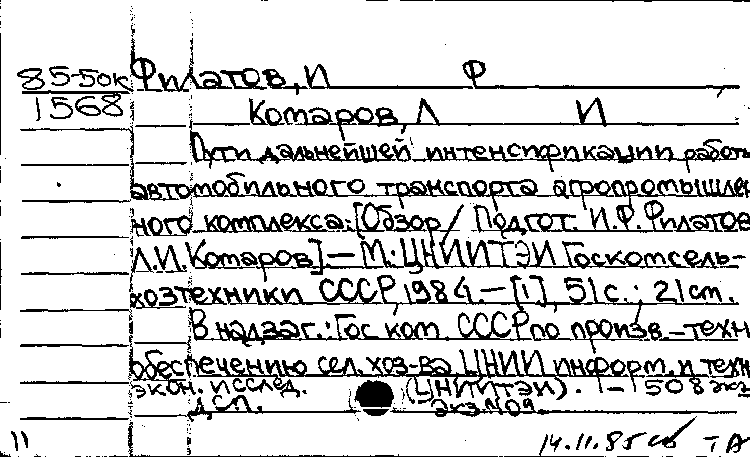 85-50к Филатов, И Ф
1568 Комаров, Л И
Пути дальнейшей интенсификации работы
автомобильного транспорта агропромышлен
ного комплекса: [Обзор / Подгот. И.Ф. Филатов
Л.И. Комаров] — М.: ЦНИИТЭИ Госкомсель-
хозтехники СССР, 1984. — [1], 51 с.; 21 см.
В надзаг.: Гос ком. СССР по произв.-техн
обеспечению сел. хоз-ва, ЦНИИ информ. и техн
экон. исслед. (ЦНИИТЭИ). 1 — 508 экз
ДСП. экз. №09.
11 14.11.85 ТА